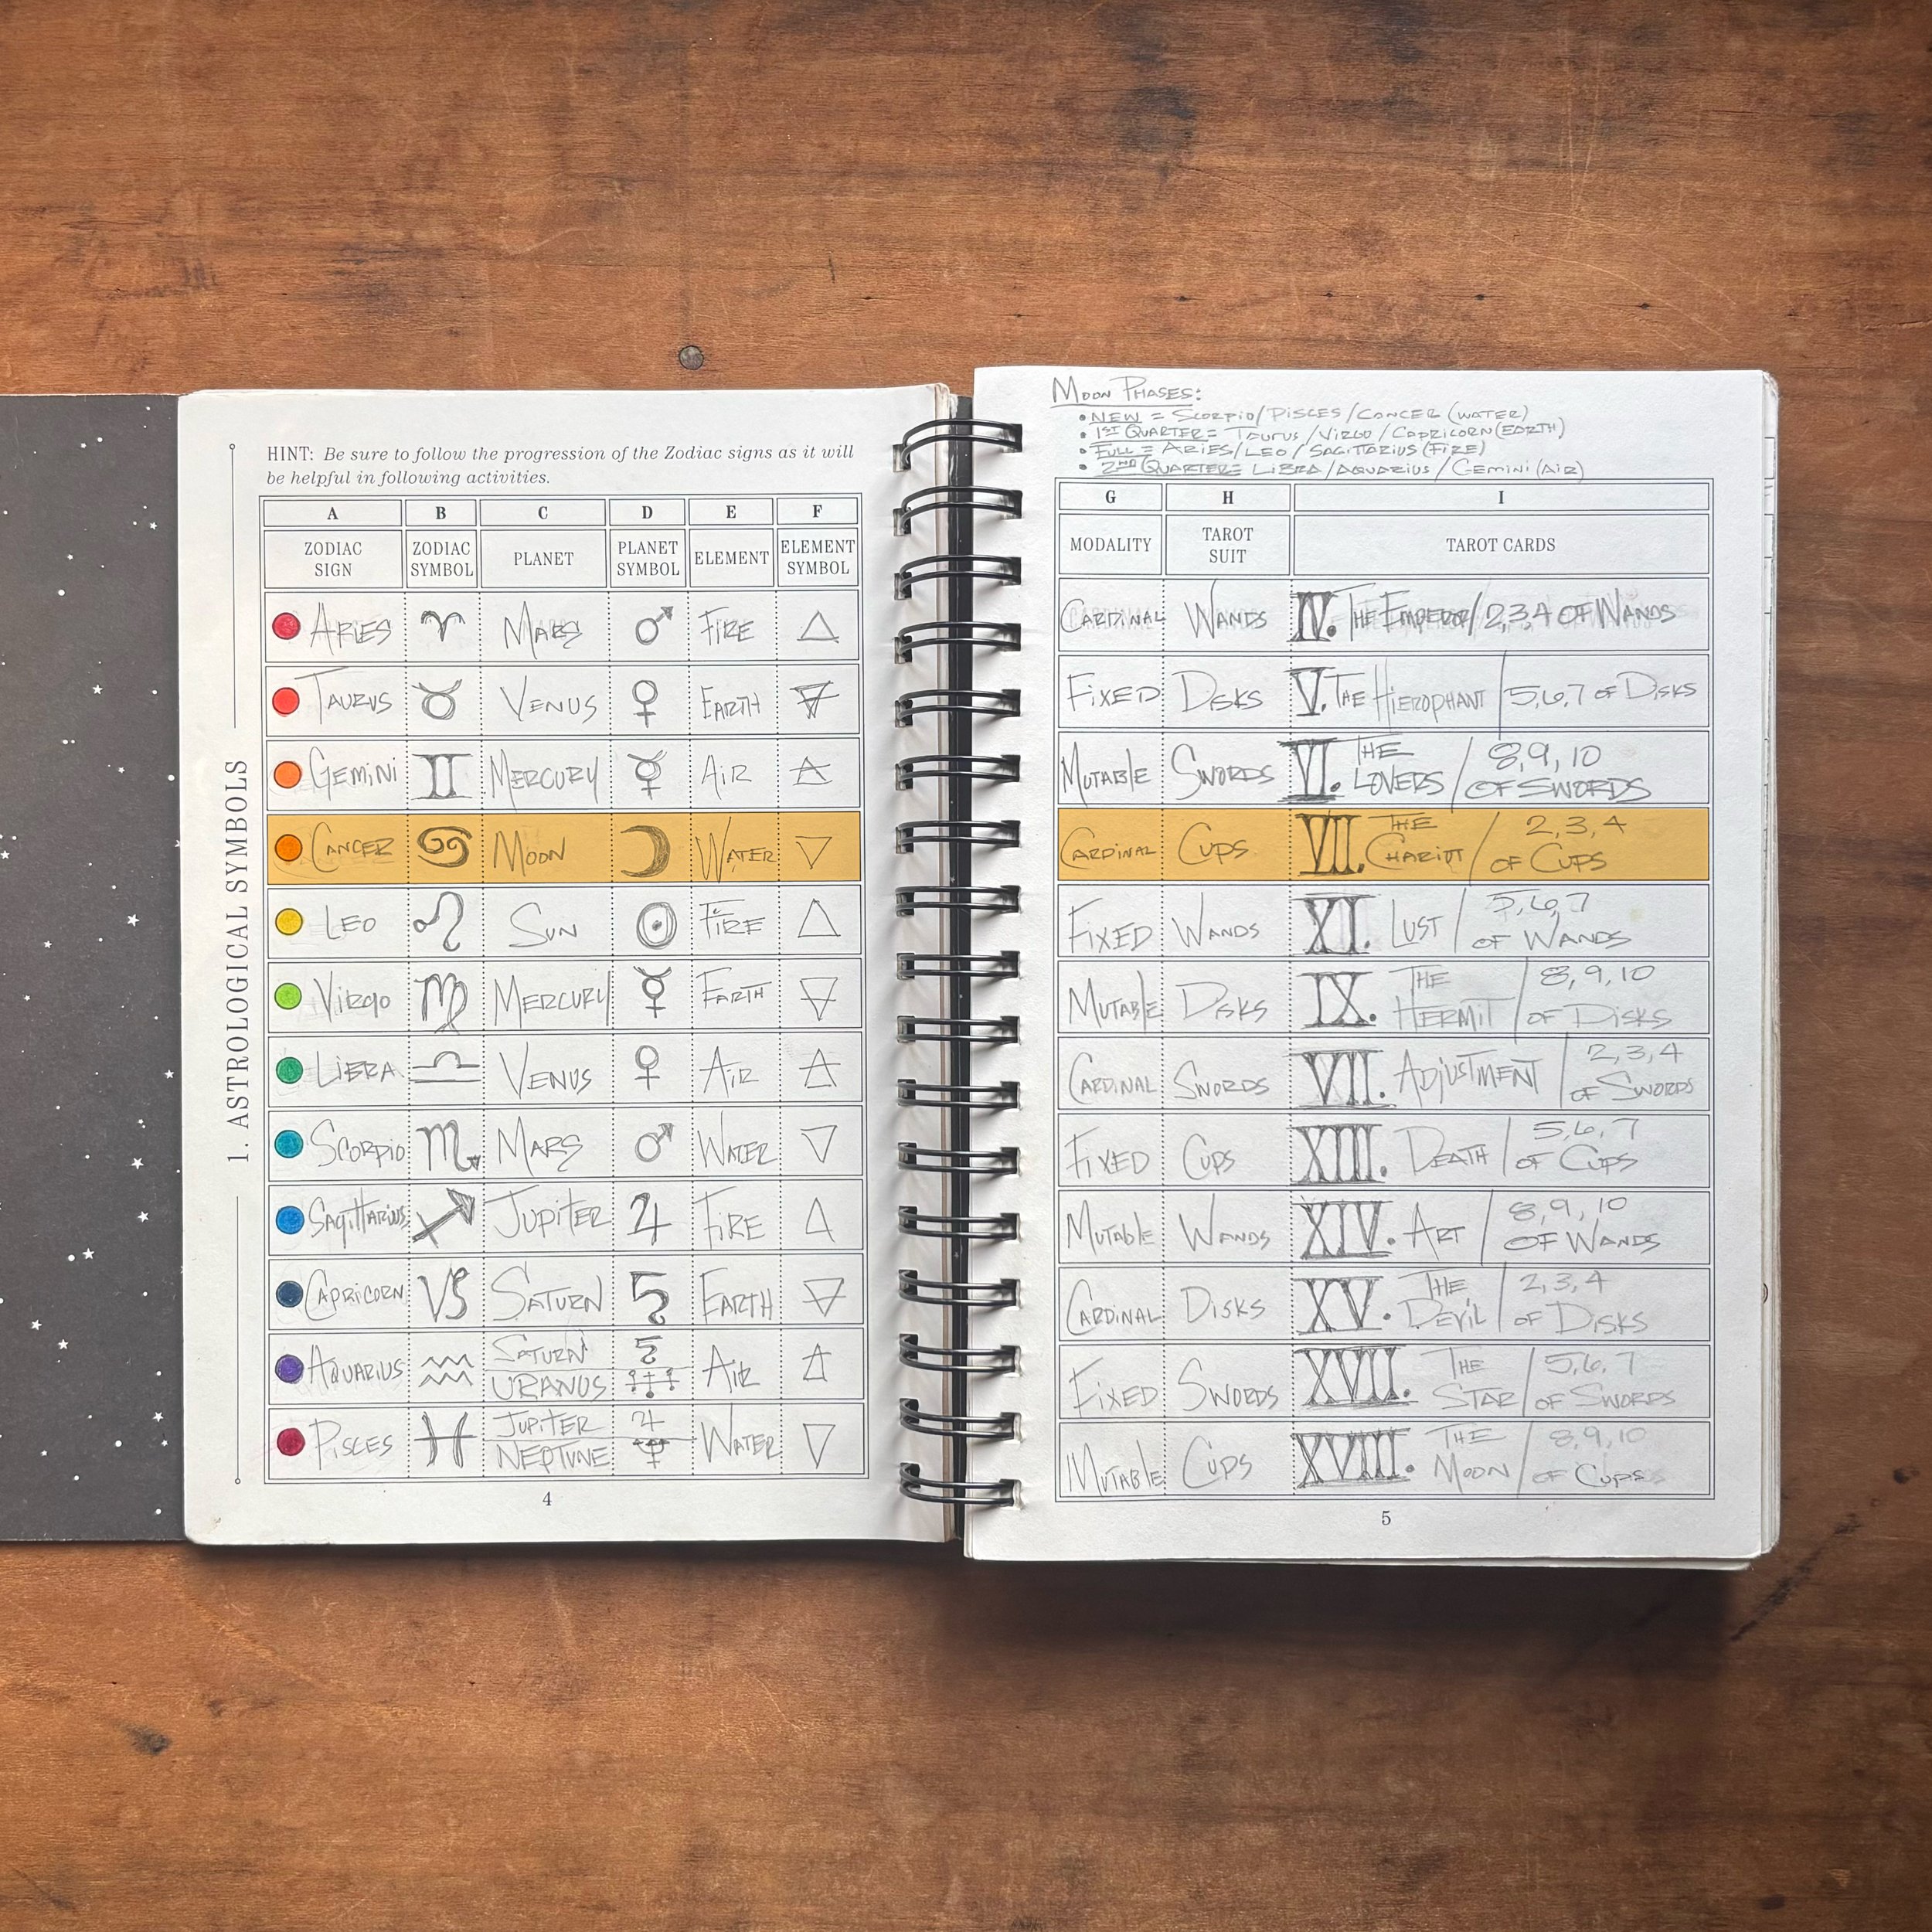 HINT: Be sure to follow the progression of the Zodiac signs as it will
be helpful in following activities.
1. ASTROLOGICAL SYMBOLS
A B C D E F
ZODIAC SIGN ZODIAC SYMBOL PLANET PLANET SYMBOL ELEMENT ELEMENT SYMBOL
ARIES ♈ MARS ♂ FIRE 🜂
TAURUS ♉ VENUS ♀ EARTH 🜃
GEMINI ♊ MERCURY ☿ AIR 🜁
CANCER ♋ MOON ☽ WATER 🜄
LEO ♌ SUN ☉ FIRE 🜂
VIRGO ♍ MERCURY ☿ EARTH 🜃
LIBRA ♎ VENUS ♀ AIR 🜁
SCORPIO ♏ MARS ♂ WATER 🜄
SAGITTARIUS ♐ JUPITER ♃ FIRE 🜂
CAPRICORN ♑ SATURN ♄ EARTH 🜃
AQUARIUS ♒ SATURN ♄ AIR 🜁
URANUS ♅
PISCES ♓ JUPITER ♃ WATER 🜄
NEPTUNE ♆
4
MOON PHASES:
• NEW = SCORPIO/PISCES/CANCER (WATER)
• 1ST QUARTER = TAURUS/VIRGO/CAPRICORN (EARTH)
• FULL = ARIES/LEO/SAGITTARIUS (FIRE)
• 2ND QUARTER = LIBRA/AQUARIUS/GEMINI (AIR)
G H I
MODALITY TAROT SUIT TAROT CARDS
CARDINAL WANDS IV. THE EMPEROR/2,3,4 OF WANDS
FIXED DISKS V. THE HIEROPHANT/5,6,7 OF DISKS
MUTABLE SWORDS VI. THE LOVERS/8,9,10 OF SWORDS
CARDINAL CUPS VII. THE CHARIOT/2,3,4 OF CUPS
FIXED WANDS XI. LUST/5,6,7 OF WANDS
MUTABLE DISKS IX. THE HERMIT/8,9,10 OF DISKS
CARDINAL SWORDS VII. ADJUSTMENT/2,3,4 OF SWORDS
FIXED CUPS XIII. DEATH/5,6,7 OF CUPS
MUTABLE WANDS XIV. ART/8,9,10 OF WANDS
CARDINAL DISKS XV. THE DEVIL/2,3,4 OF DISKS
FIXED SWORDS XVII. THE STAR/5,6,7 OF SWORDS
MUTABLE CUPS XVIII. THE MOON/8,9,10 OF CUPS
5